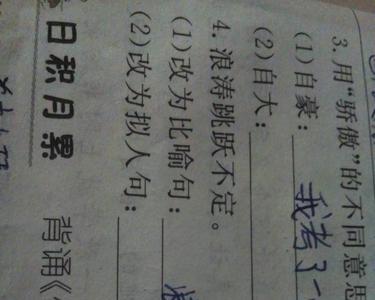 3.用“骄傲”的不同意思
(1)自豪：我考了
(2)自大：
4.浪涛跳跃不定。
(1)改为比喻句：
(2)改为拟人句：
日积月累
背诵《